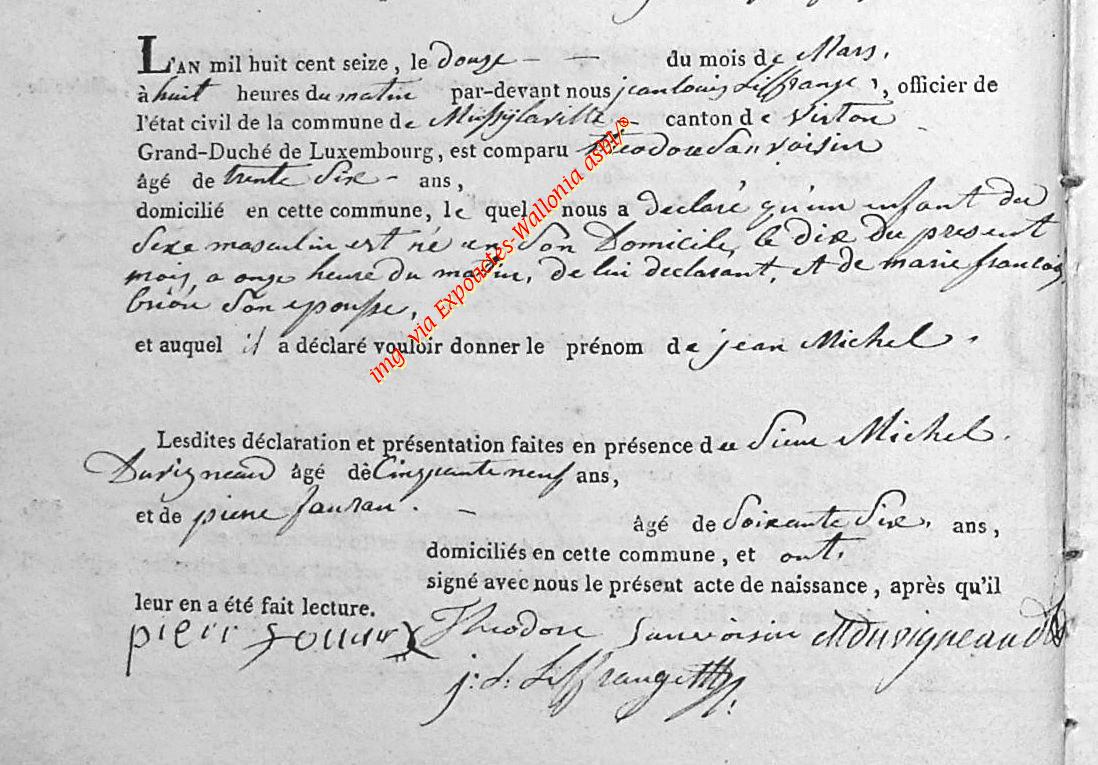 L'AN mil huit cent seize, le douze - - du mois de Mars,
à huit heures du matin par-devant nous jean louis Liffrange, officier de
l'état civil de la commune de Mussylaville - canton de Virton
Grand-Duché de Luxembourg, est comparu theodore Sauvoisin
âgé de trente Six - ans,
domicilié en cette commune, le quel nous a declaré qu'un enfant du
Sexe masculin est né en Son Domicile, le dix du present
mois, a onze heure du matin, de lui declarant, et de marie francois
Son epousse,
et auquel il a déclaré vouloir donner le prénom de jean Michel.
Lesdites déclaration et présentation faites en présence de Sieur Michel
Duvigneaud âgé de Cinquante neuf ans,
et de piere - âgé de Soixante Six, ans,
domiciliés en cette commune, et ont,
signé avec nous le présent acte de naissance, après qu'il
leur en a été fait lecture.
pieir Theodore Sauvoisin MDuvigneaud
j: l: Liffrange
img via Expoactes-Wallonia asbl/®